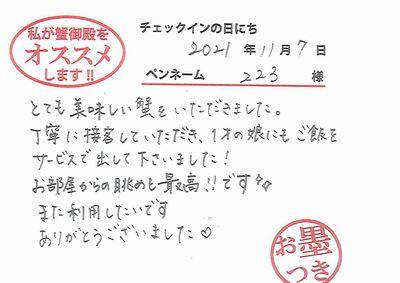 私が蟹御殿を
オススメ
します!!
チェックインの日にち
2021年11月7日
ペンネーム 223 様
とても美味しい蟹をいただきました。
丁寧に接客していただき、1才の娘にもご飯を
サービスで出して下さいました!
お部屋からの眺めも最高!!です✨
また利用したいです
ありがとうございました♡
お墨
つき